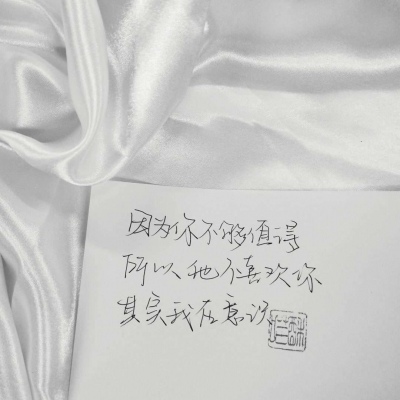 因为你不够值得
所以他不喜欢你
其实我在意识